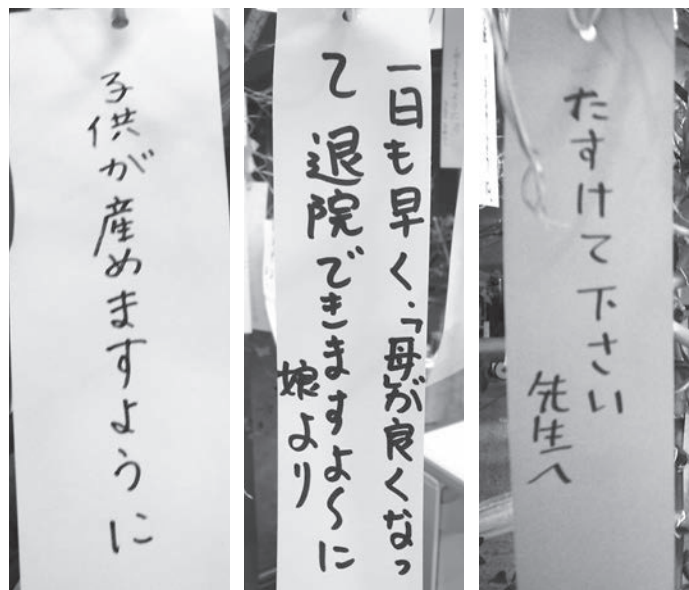 子供が産めますように
一日も早く、「母」が良くなっ
て退院できますよ〜に
娘より
たすけて下さい
先生へ